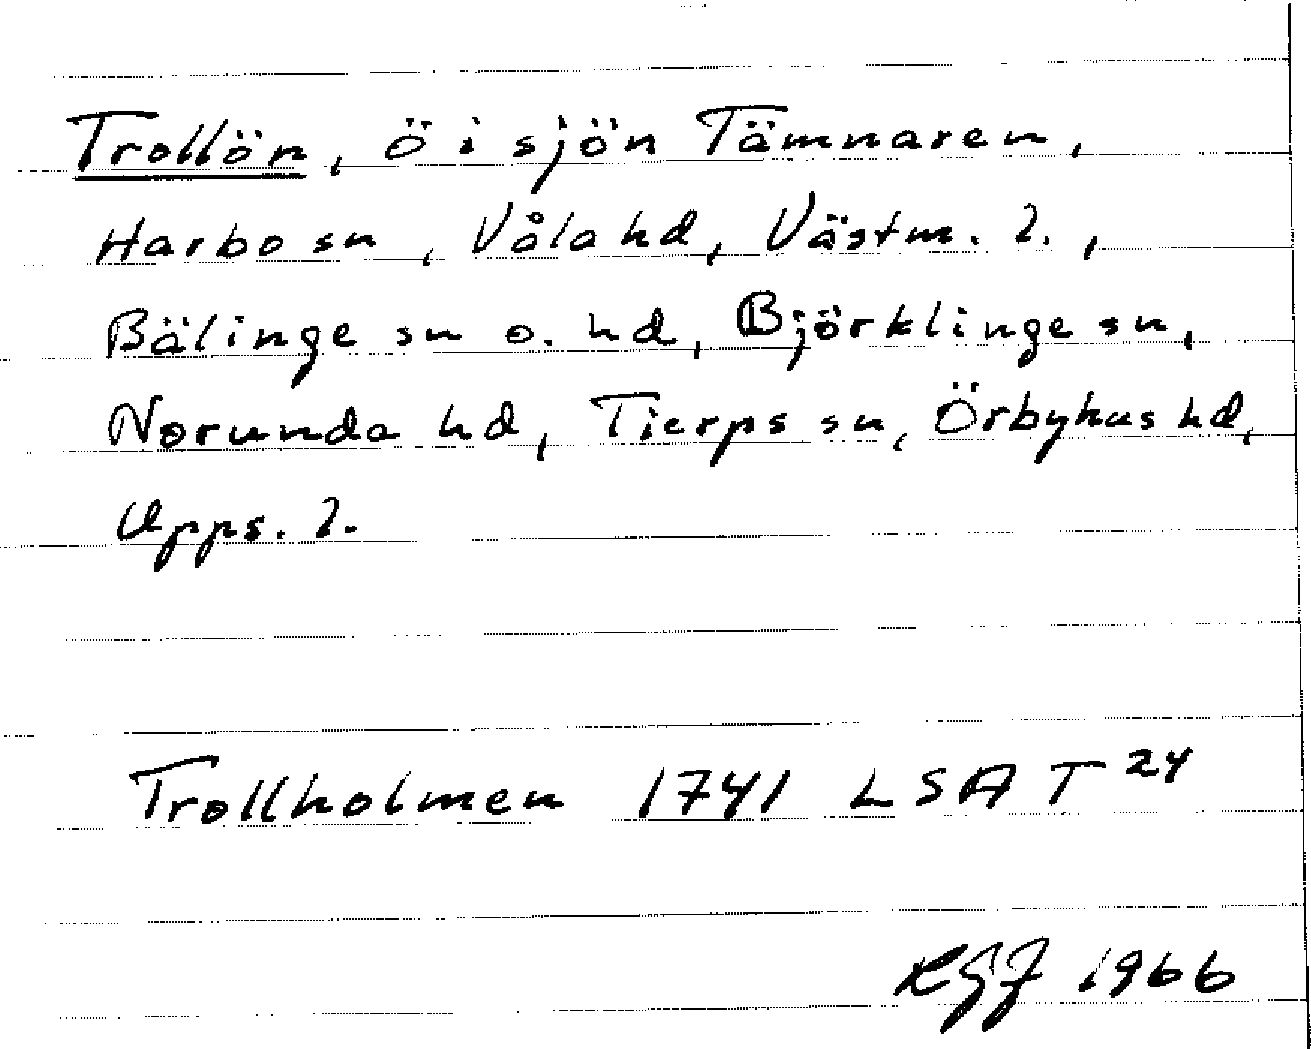 Trollön, ö i sjön Tämnaren,
Harbo sn, Våla hd, Västm. l.,
Bälinge sn o. hd, Björklinge sn,
Norunda hd, Tierps sn, Örbyhus hd,
Upps. l.
Trollholmen 1741 LSA T 24
1966